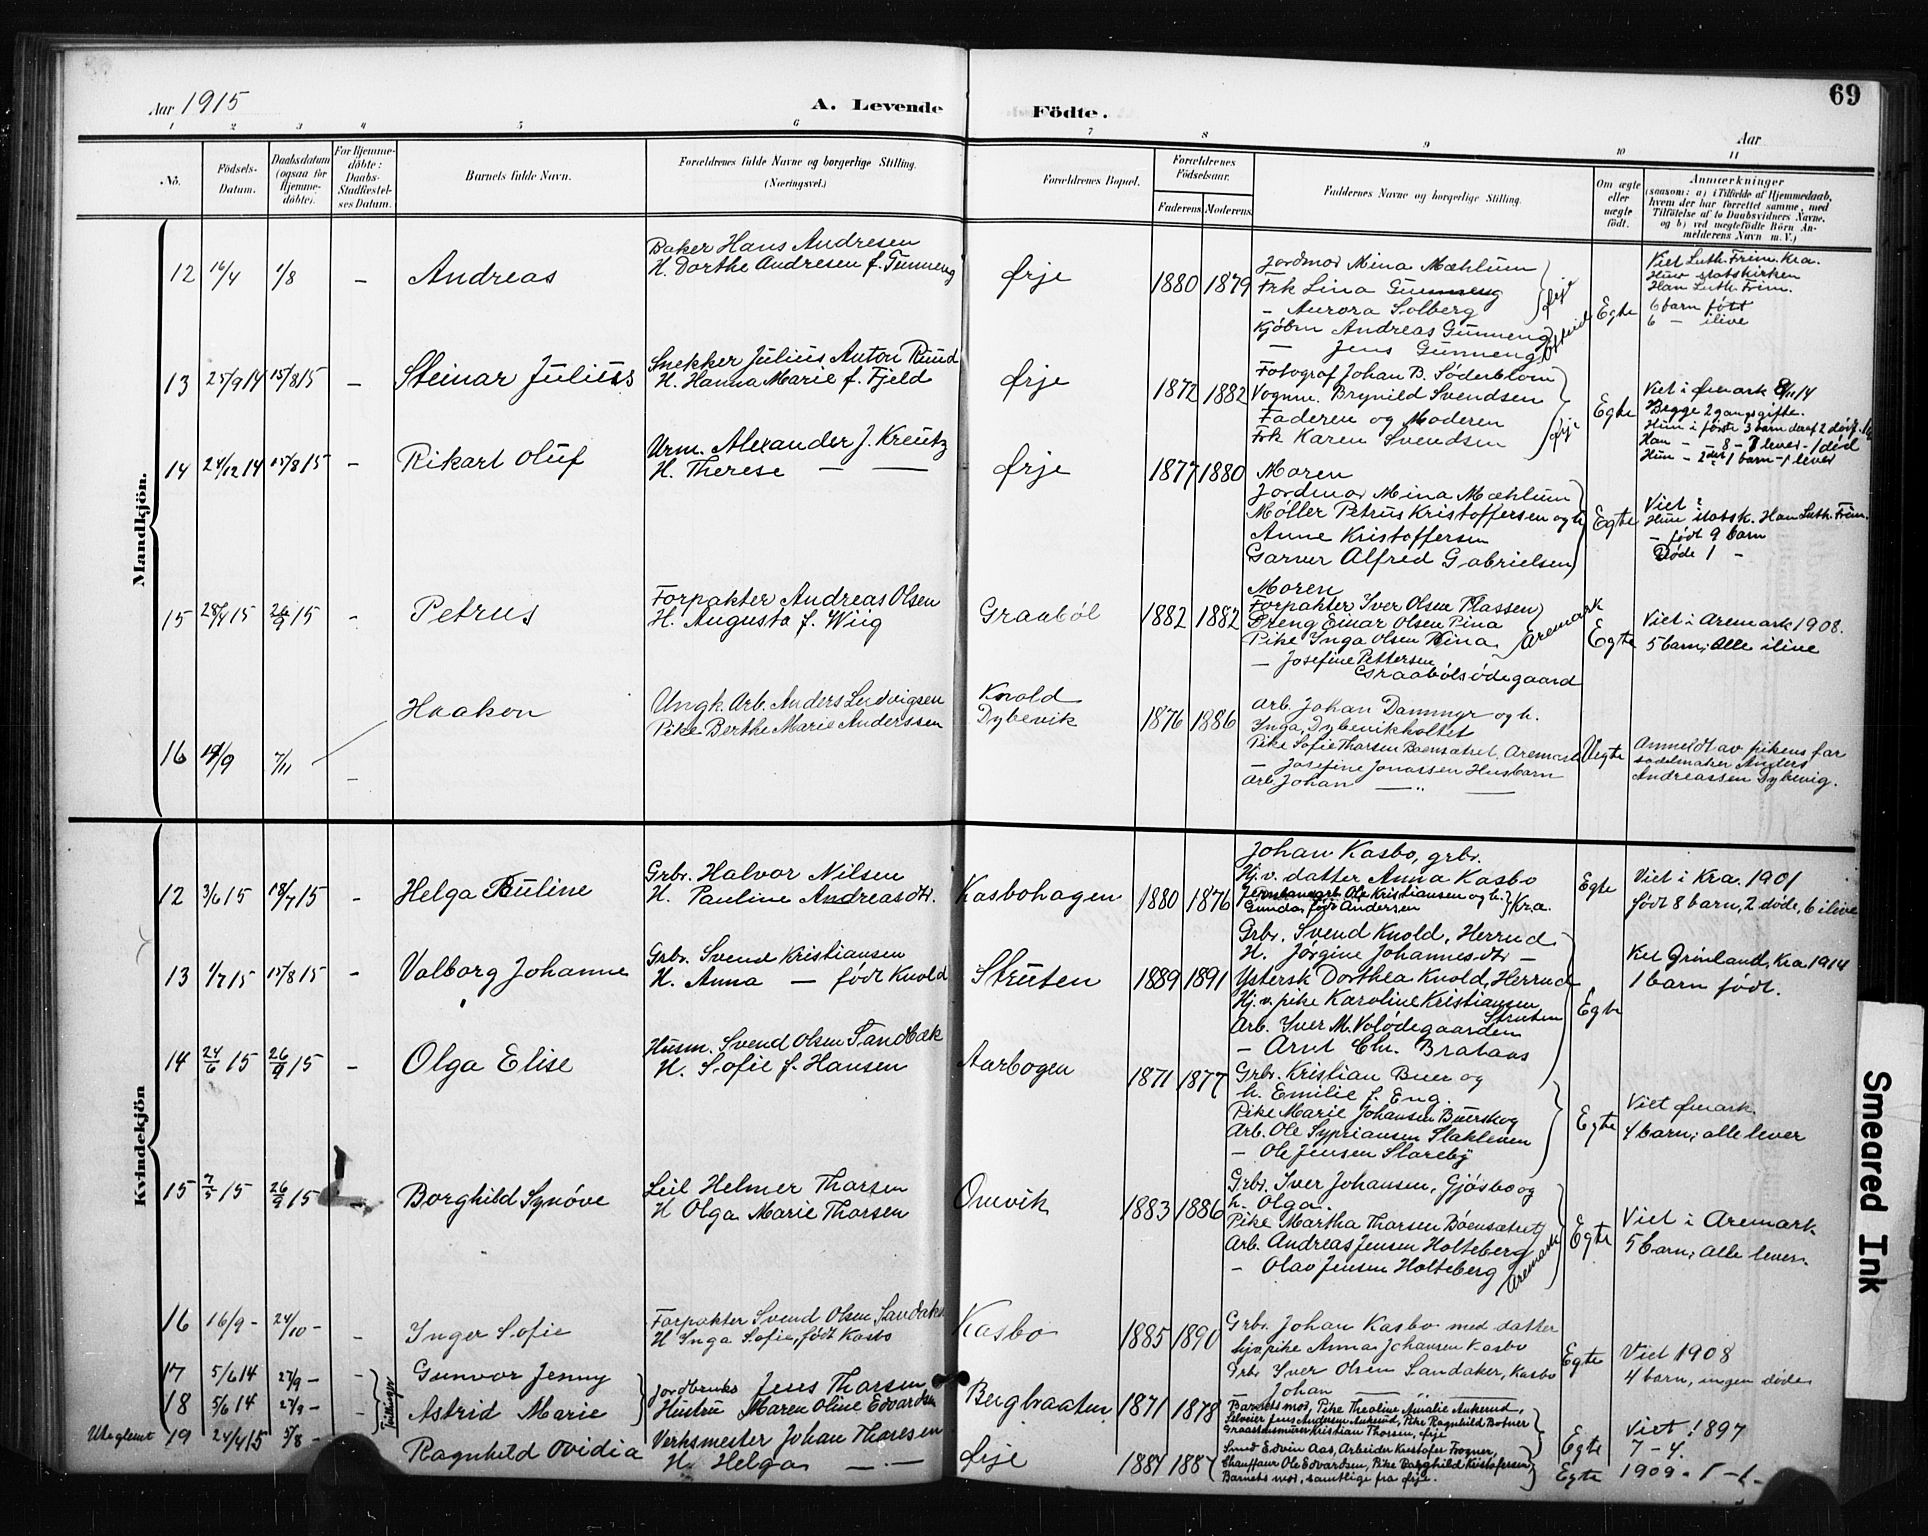 69
Aar 1915
A. Levende Födte.
Aar
1 2 3 4 5 6 7 8 9 10 11
No.
Födsels-Datum.
Daabsdatum (ogsaa for Hjemme-döbte).
For Hjemme-döbte: Daabs-Stadfæstel-ses Datum.
Barnets fulde Navn.
Forældrenes fulde Navne og borgerlige Stilling.
(Næringsvei.)
Forældrenes Bopæl.
Forældrenes Födselsaar.
Faderens Moderens
Faddernes Navne og borgerlige Stilling.
Om ægte eller uægte födt.
Anmærkninger
(saasom: a) i Tilfælde af Hjemmedaab, hvem der har forrettet samme, med Tilföielse af to Daabsvidners Navne, og b) ved uægtefödte Börn An-melderens Navn m. V.)
Mandkjön.
12 16/4 1/8 - Andreas
Baker Hans Andresen
H. Dorthe Andresen f. Gunneng
Ørje 1880 1879
Jordmor Mina Mæhlum
Frk Lina Gunneng
- Aurora Solberg
Kjøbm Andreas Gunneng
- Jens Gunneng
Ørje
Egte
Viet Luth. Frim. Kra.
Hun statskirken
Han Luth. Frim.
6 barn født
6 - ilive
13 25/9 14 15/8 15 - Steinar Julius
Snekker Julius Anton Ruud
H. Hanna Marie f. Fjeld
Ørje 1872 1882
Fotograf Johan B. Söderblom
Vognm. Brynild Svendsen
Faderen og Moderen
Frk Karen Svendsen
Ørje
Egte
Viet i Øimark 8/11 14
Begge 2 gangs gifte.
Hun i første 3 barn daraf 2 død
Han - - 8 - 7 lever - 1 død
Hun - 2det 1 barn - 1 lever
14 24/12 14 15/8 15 - Rikart Oluf
Urm. Alexander J. Kreutz
H. Therese - -
Ørje 1877 1880
Moren
Jordmor Mina Mæhlum
Møller Petrus Kristoffersen og h.
Anne Kristoffersen
Garver Alfred Gabrielsen
Egte
Viet ?
Hun statsk. Han Luth. Frim.
- født 9 barn
Døde 1 -
15 28/4 15 26/9 15 - Petrus
Forpakter Andreas Olsen
H. Augusta f. Wiig
Graabøl 1882 1882
Moren
Forpakter Iver Olsen Plassen
Dreng Einar Olsen Pina
Pike Inga Olsen Pina
- Josefine Pettersen
Graabølsødegaard
Aremark
Egte
Viet i Aremark 1908.
5 barn; alle ilive
16 19/9 7/11 - Haakon
Ungk. Arb. Anders Ludvigsen
Pike Berthe Marie Anderssen
Knold
Dybevik 1876 1886
Arb. Johan Dammyr og h.
Inga, Dybevikholtet
Pike Sofie Thorsen Boensætret, Aremark
- Josefine Jonassen Husbarn
Arb. Johan - " -
Uegte
Anmeldt av pikens far
sadelmaker Anders
Andreassen Dybevig.
Kvindekjön
12 3/6 15 18/7 15 - Helga Pauline
Grbr. Halvor Nilsen
H. Pauline Andreasdtr.
Kasbohagen 1880 1876
Johan Kasbo, grbr.
Hj.v. datter Anna Kasbo
Jernbanearb. Ole Kristiansen og h.
Gunda, født Andersen
Kra.
Egte
Viet i Kra. 1901
født 8 barn, 2 døde, 6 ilive
13 1/7 15 15/8 15 - Valborg Johanne
Grbr. Svend Kristiansen
H. Anna - født Knold
Struten 1889 1891
Grbr. Svend Knold, Herrud
H. Jørgine Johannesdtr -
Ystersk Dorthea Knold, Herrud
Hj.v. pike Karoline Kristiansen
Struten
Arb. Iver M. Volødegaarden
- Arnt Chr. Brataas
Egte
Viet Grønland, Kra 1914
1 barn født.
14 24/6 15 26/9 15 - Olga Elise
Husm. Svend Olsen Sandbæk
H. Sofie f. Hansen
Aarbogen 1871 1877
Grbr. Kristian Buer og
h. Emilie f. Eng.
Pike Marie Johansen Buerskog
Arb. Ole Sypriansen Slakleven
- Ole Jensen Slareby
Egte
Viet Øimark.
4 barn; alle lever
15 7/5 15 26/9 15 - Borghild Synøve
Leil Helmer Thorsen
H Olga Marie Thorsen
Ønevik 1883 1886
Grbr. Iver Johansen, Gjøsbo og
h. Olga.
Pike Martha Thorsen Böensætret
Arb. Andreas Jensen Holteberg
- Olav Jensen Holteberg
Aremark
Egte
Viet i Aremark
5 barn; alle lever.
16 16/9 - 24/10 - - Inger Sofie
Forpakter Svend Olsen Sandaker
H Inga Sofie, født Kasbo
Kasbo 1885 1890
Grbr. Johan Kasbo med datter
hjv. pike Anna Johansen Kasbo
Grbr Iver Olsen Sandaker, Kasbo
Johan - -
Egte
Viet 1908
4 barn, ingen døde
17 5/6 14 27/9 - - Gunvor Jenny
18 5/6 14 27/9 - - Astrid Marie
Tvillinger
Jordbruker Jens Thorsen
Hustru Maren Oline Edvardsen
Bergbraaten 1871 1878
Barnets mor, Pike Theoline Amalie Ankerud,
Selveier Jens Andersen Ankerud, Pike Ragnhild Botner
Graastensmurer Kristian Thorsen, Ørje
Egte
Viet 1897
7 - 4.
Uteglemt 19 24/4 15 5/8 - Ragnhild Ovidia
Verksmester Johan Thoresen
H. Helga - -
Ørje 1881 1887
Smed Edvin Aas, Arbeider Kristofer Frogner,
Chauffør Ole Edvardsen, Pike Borghild Kristofersen
Barnets mor, samtlige fra Ørje.
Egte 1909 - 1 - 1 -
Smeared Ink